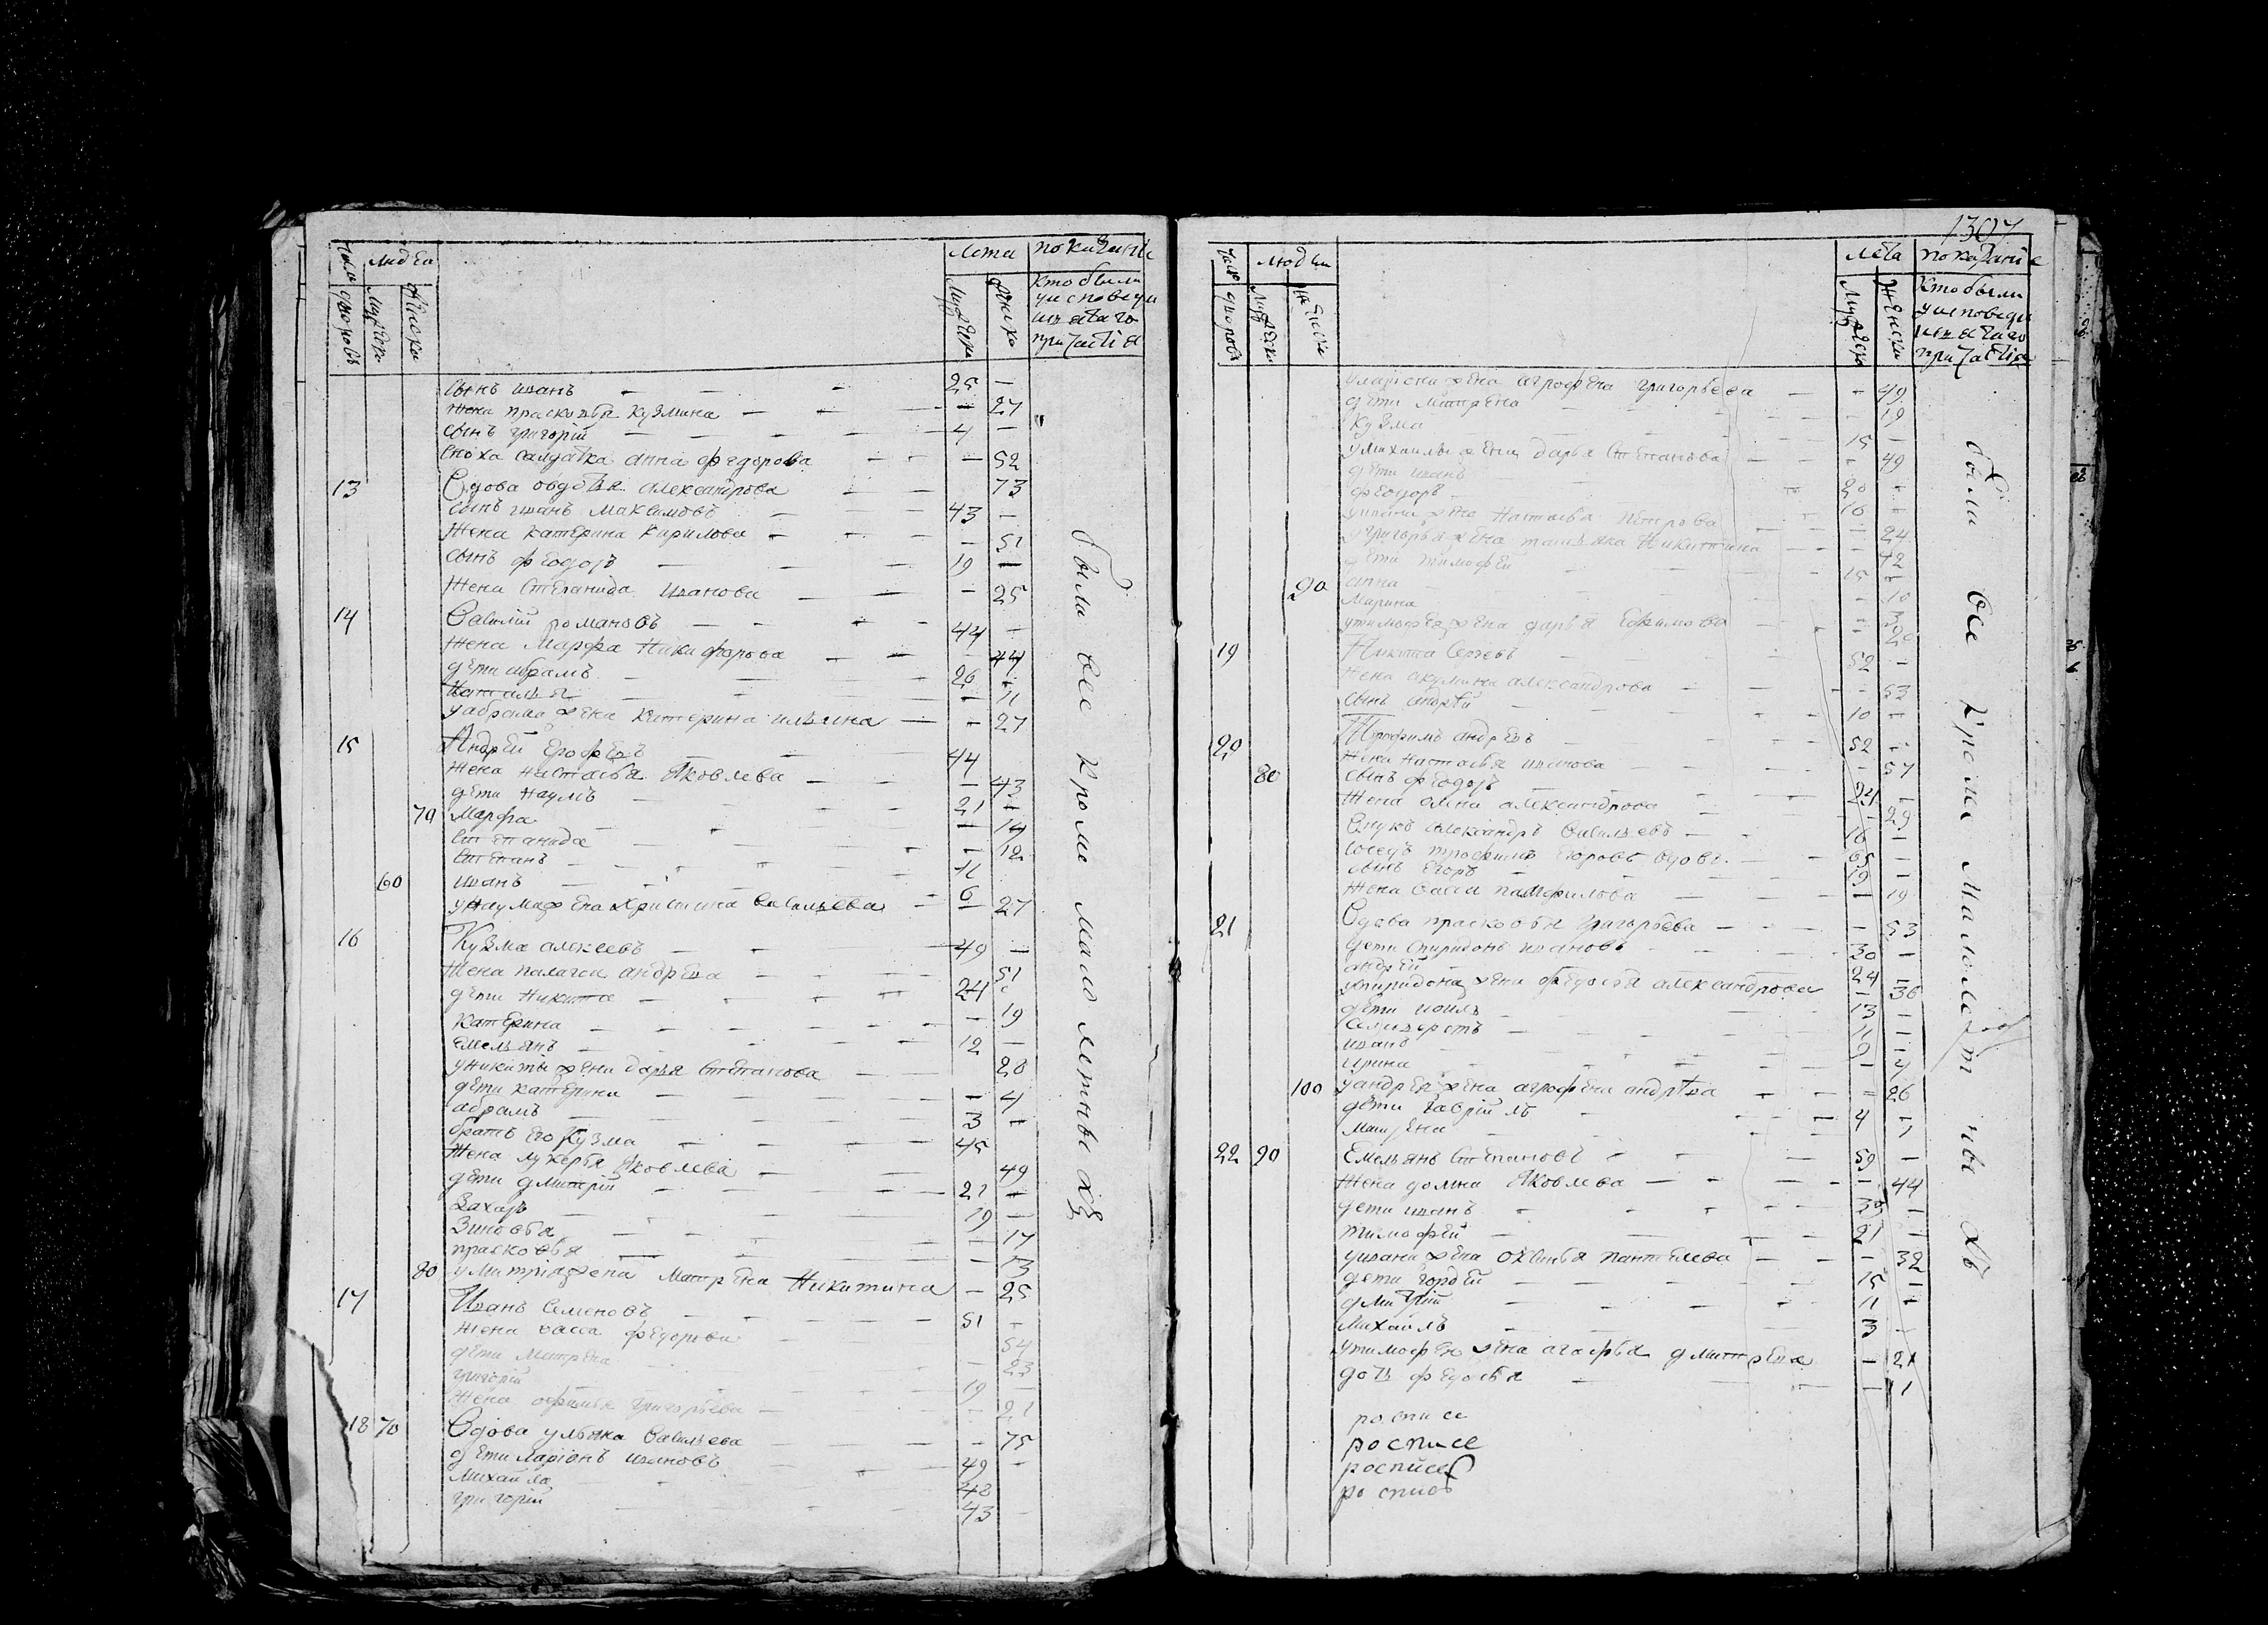 Число дворовъ
людей
мужеска
женска
лета
мужеска
женска
показание
кто были
у исповеди
и св͠таго
причастїя
сынъ иванъ — — — 25 —
жена прасковья кузмина — — — 27
сынъ григорїй — — — 4 —
сноха салдатка анна федорова — — — 52
13 Вдова овдотья александрова — — 73
сынъ иванъ максимовъ — — 43 —
жена катерина кирилова — — — 51
сынъ феодоръ — — 19 —
жена степанида иванова — — — 25
14 Василїй романовъ — — — 44 —
жена марфа никифорова — — — 44
дети абрамъ — — 26 —
наталья — — — 11
у абрама жена катерина ильина — — 27
15 Андрей ерофеевъ — — 44
жена настасья яковлева — — — 43
дети наумъ — — 21 —
70 марфа — — — 14
степанида — — — 12
степанъ — — — 11
60 иванъ — — — 6
у наума жена христина васильева — — 27
16 Кузма алексеевъ — — 49 —
жена палагея андреева — — — 51
дети никита — — — 24
катерина — — — — 19
емельянъ — — — 12 —
у никиты жена дарья степанова — — 28
дети катерина — — — 4
абрамъ — — 3 —
братъ его кузма — — — 45
жена лукерья яковлева — — 49
дети дмитрїй — — — 21 —
захаръ — — — 19 —
зиновья — — — — 17
прасковья — — — — 13
80 у митрїя жена матрена никитина — 25
17 Иванъ семеновъ — — — 51 —
жена васса федорова — — 54
дети матрена — — 23
григорїй — — 19 —
жена офимья григорьева — — 21
18 70 Вдова ульяна васильева — — — 75
дети ларїонъ ивановъ — — 49 —
михайла — — 48
григорїй — — 43 —
были все кроме мало летныхъ
1307
число дворовъ
людей
мужеска
женска
лета
мужеска
женска
показанїе
кто были
у исповеди
и св͠таго
причастїя
у ларїона жена агрофена григорьева — — 49
дети матрена — — — 19
кузма — — 15 —
у михайлы жена дарья степанова — — 49
дети иванъ — — 20 —
феодоръ — — 16 —
у ивана жена настасья петрова — — 24
у григорья жена татьяна никитина — — 42
дети тимофей — — 15 —
90 анна — — 10
марина — — 3
у тимофея жена дарья ефимова — — 20
19 Никита сергеевъ — — 52 —
жена акулина александрова — — 53
сынъ андрей — — 10 —
20 Трофимъ андреевъ — — 52 —
жена настасья иванова — — — 57
80 сынъ феодоръ — — 24 —
жена анна александрова — — — 29
внукъ александръ васильевъ — — 16 —
соседъ трофимъ егоровъ вдовъ — — 65 —
сынъ егоръ — — 19 —
жена васса памфилова — — — 19
21 Вдова прасковья григорьева — — — 53
дети спиридонъ ивановъ — — 30 —
андрей — — 24 —
у спиридона жена федосья александрова — 36
дети иоиль — — 13 —
селиверстъ — — 11 —
иванъ — — 9 —
ирина — — — 4
100 у андрея жена агрофена андреева — — — 26
дети гаврїилъ — — 4 —
матрена — — 1
22 90 Емельянъ степановъ — — 59 —
жена домна яковлева — — — — 44
дети иванъ — — — 39 —
тимофей — — — 21 —
у ивана жена оксинья пантелева — — — 32
дети гордей — — 15 —
дмитрїй — — — 11 —
михаилъ — — 3 —
у тимофея жена агафья дмитреева — 21
дочь федосья — — — 1
росписе
росписе
росписе
росписе
были все кроме малолетныхъ